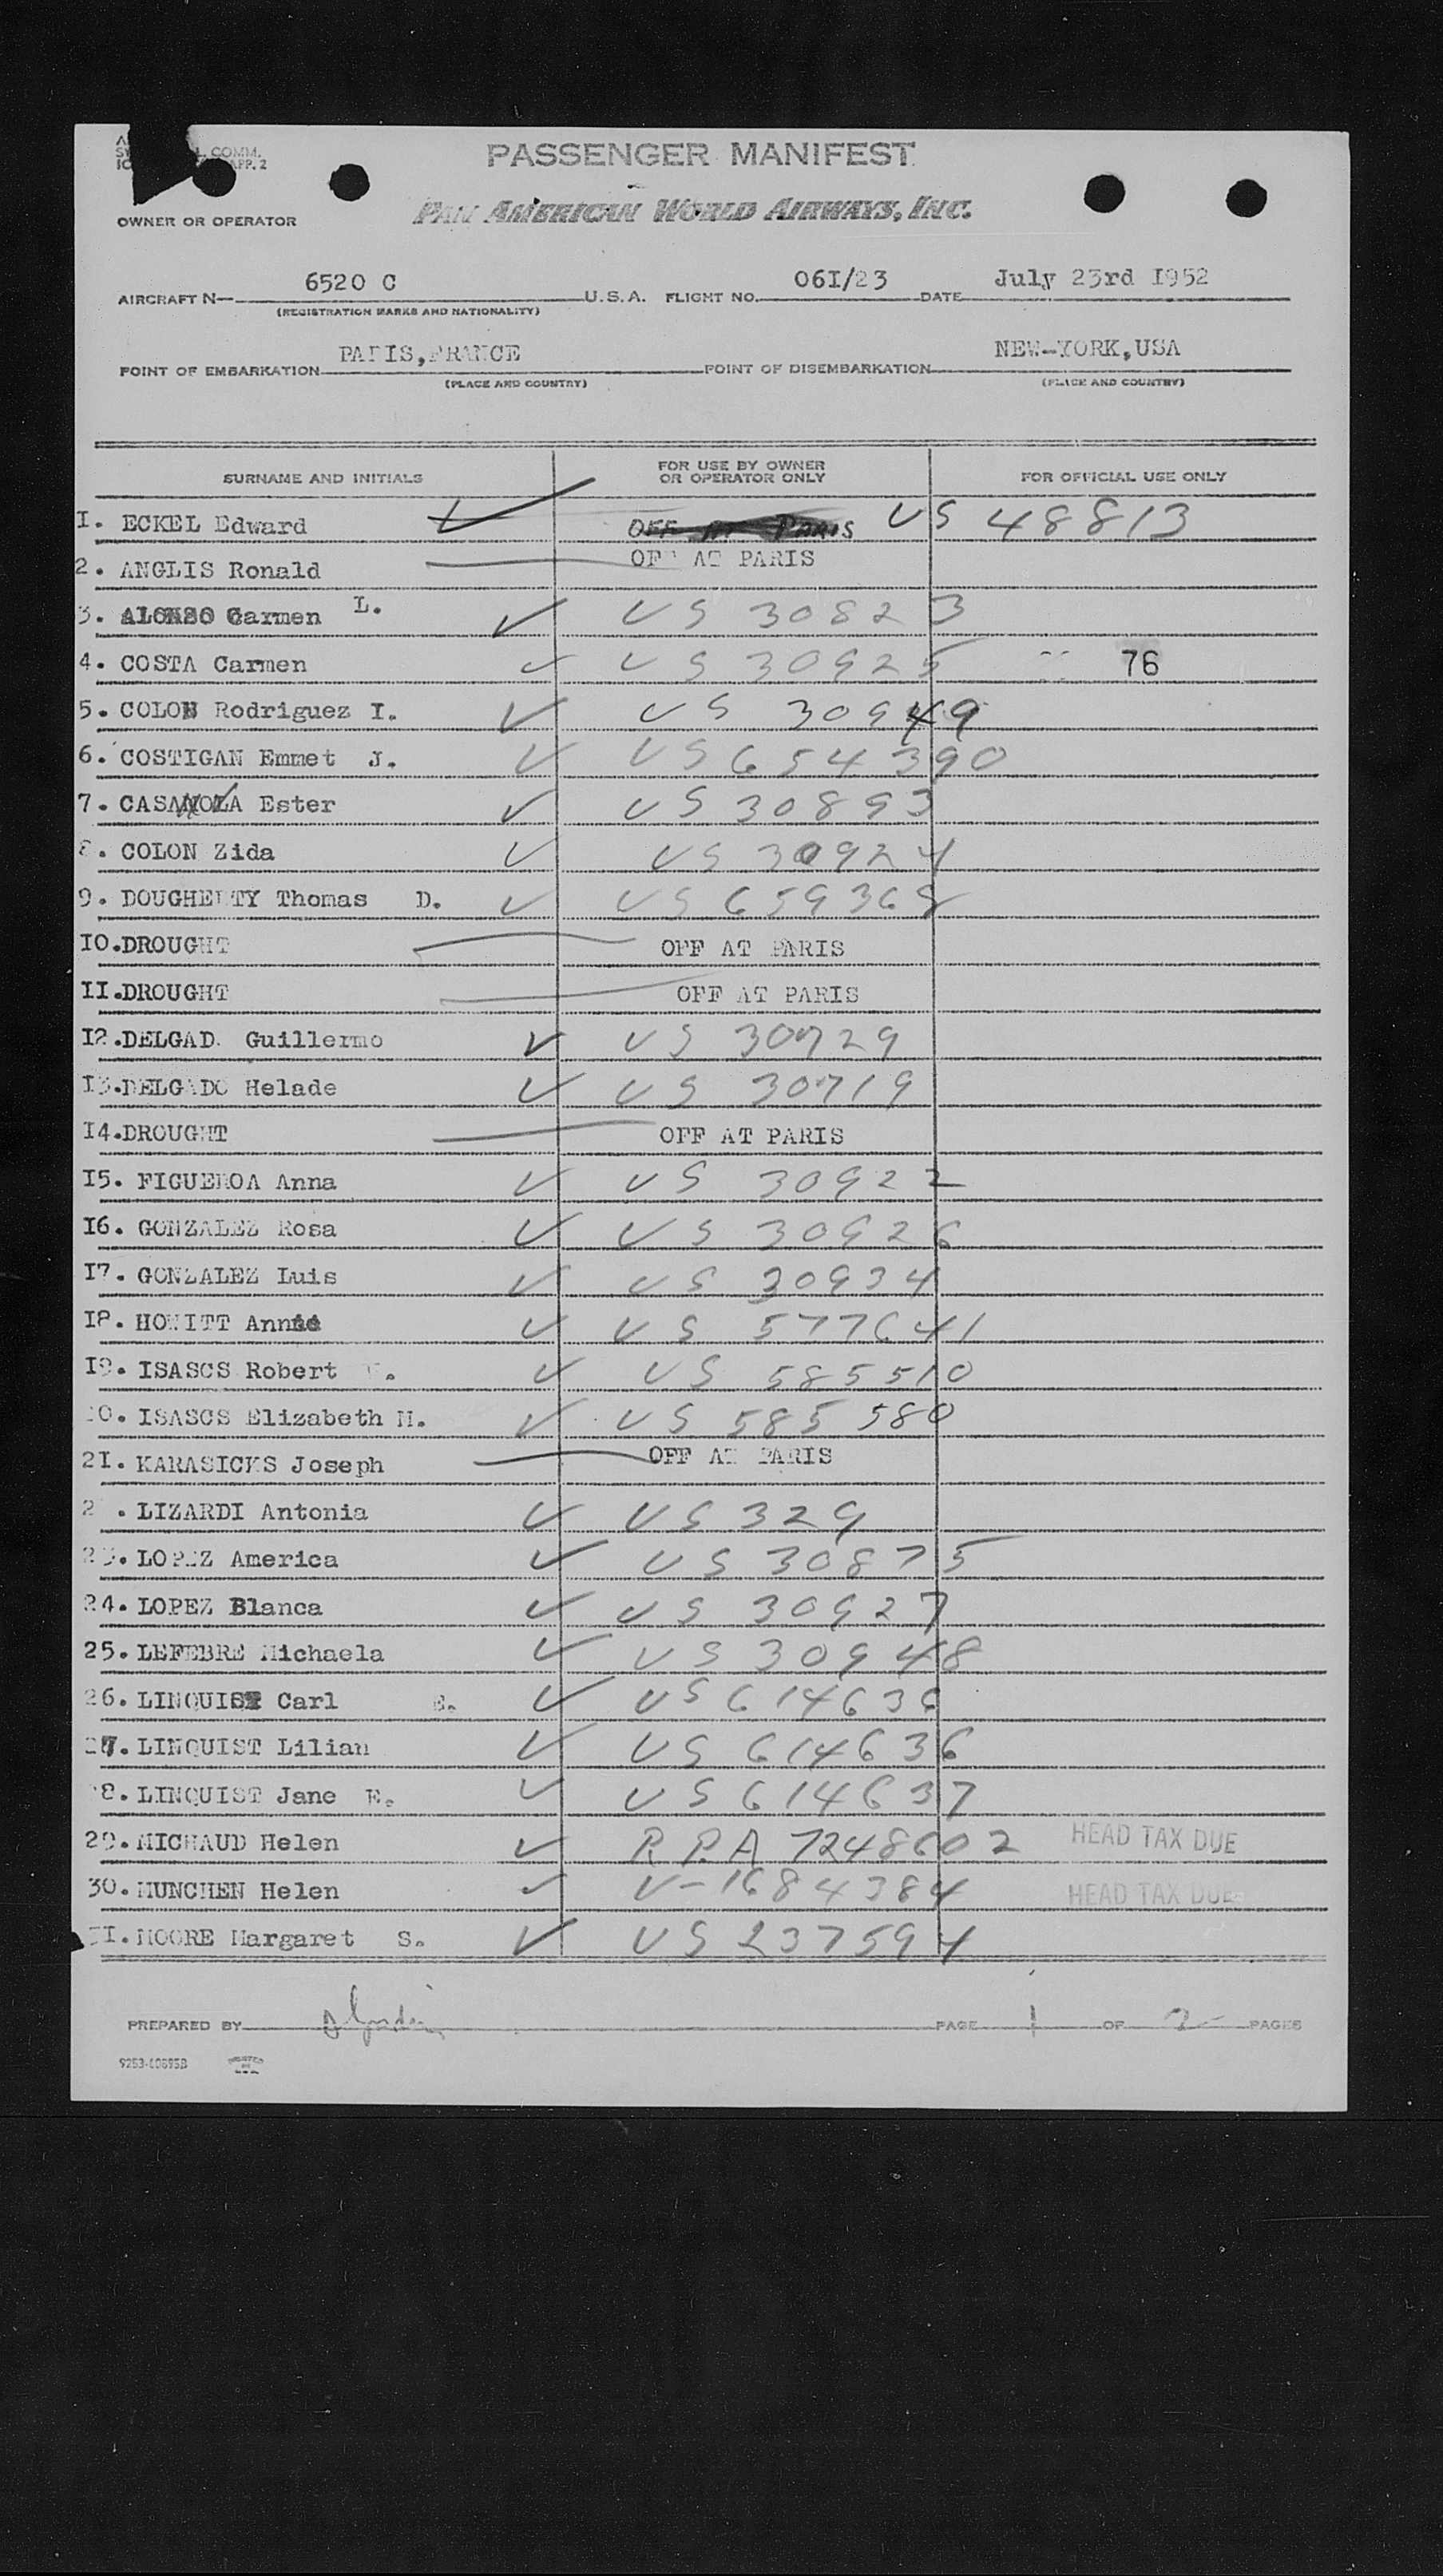 COMM.
APP. 2
PASSENGER MANIFEST
OWNER OR OPERATOR PAN AMERICAN WORLD AIRWAYS, INC.
AIRCRAFT N— 6520 C U.S.A. FLIGHT NO. 06I/23 DATE July 23rd I952
(REGISTRATION MARKS AND NATIONALITY)
POINT OF EMBARKATION PARIS,FRANCE POINT OF DISEMBARKATION NEW-YORK,USA
(PLACE AND COUNTRY) (PLACE AND COUNTRY)
SURNAME AND INITIALS FOR USE BY OWNER OR OPERATOR ONLY FOR OFFICIAL USE ONLY
I. ECKEL Edward OFF AT PARIS US 48813
2. ANGLIS Ronald OFF AT PARIS
3. ALONSO Carmen L. US 30823
4. COSTA Carmen US 30925 76
5. COLON Rodriguez I. US 30949
6. COSTIGAN Emmet J. US 654390
7. CASANOVA Ester US 30893
8. COLON Zida US 30924
9. DOUGHERTY Thomas D. US 659368
IO.DROUGHT OFF AT PARIS
II.DROUGHT OFF AT PARIS
I2.DELGAD Guillermo US 30729
I3.DELGADO Helade US 30719
I4.DROUGHT OFF AT PARIS
I5. FIGUEROA Anna US 30922
I6. GONZALEZ Rosa US 30926
I7. GONZALEZ Luis US 30934
I8. HOWITT Annie US 577641
I9. ISASCS Robert US 585510
20. ISASCS Elizabeth M. US 585580
2I. KARASICKS Joseph OFF AT PARIS
2 . LIZARDI Antonia US 329
23. LOPEZ America US 30875
24. LOPEZ Blanca US 30927
25. LEFEBRE Michaela US 30948
26. LINQUIST Carl E. US 614636
27. LINQUIST Lilian US 614636
28. LINQUIST Jane E. US 614637
29. MICHAUD Helen R.P.A 7248602 HEAD TAX DUE
30. MUNCHEN Helen V-1684384 HEAD TAX DUE
3I. MOORE Margaret S. US 237594
PREPARED BY PAGE 1 OF 2 PAGES